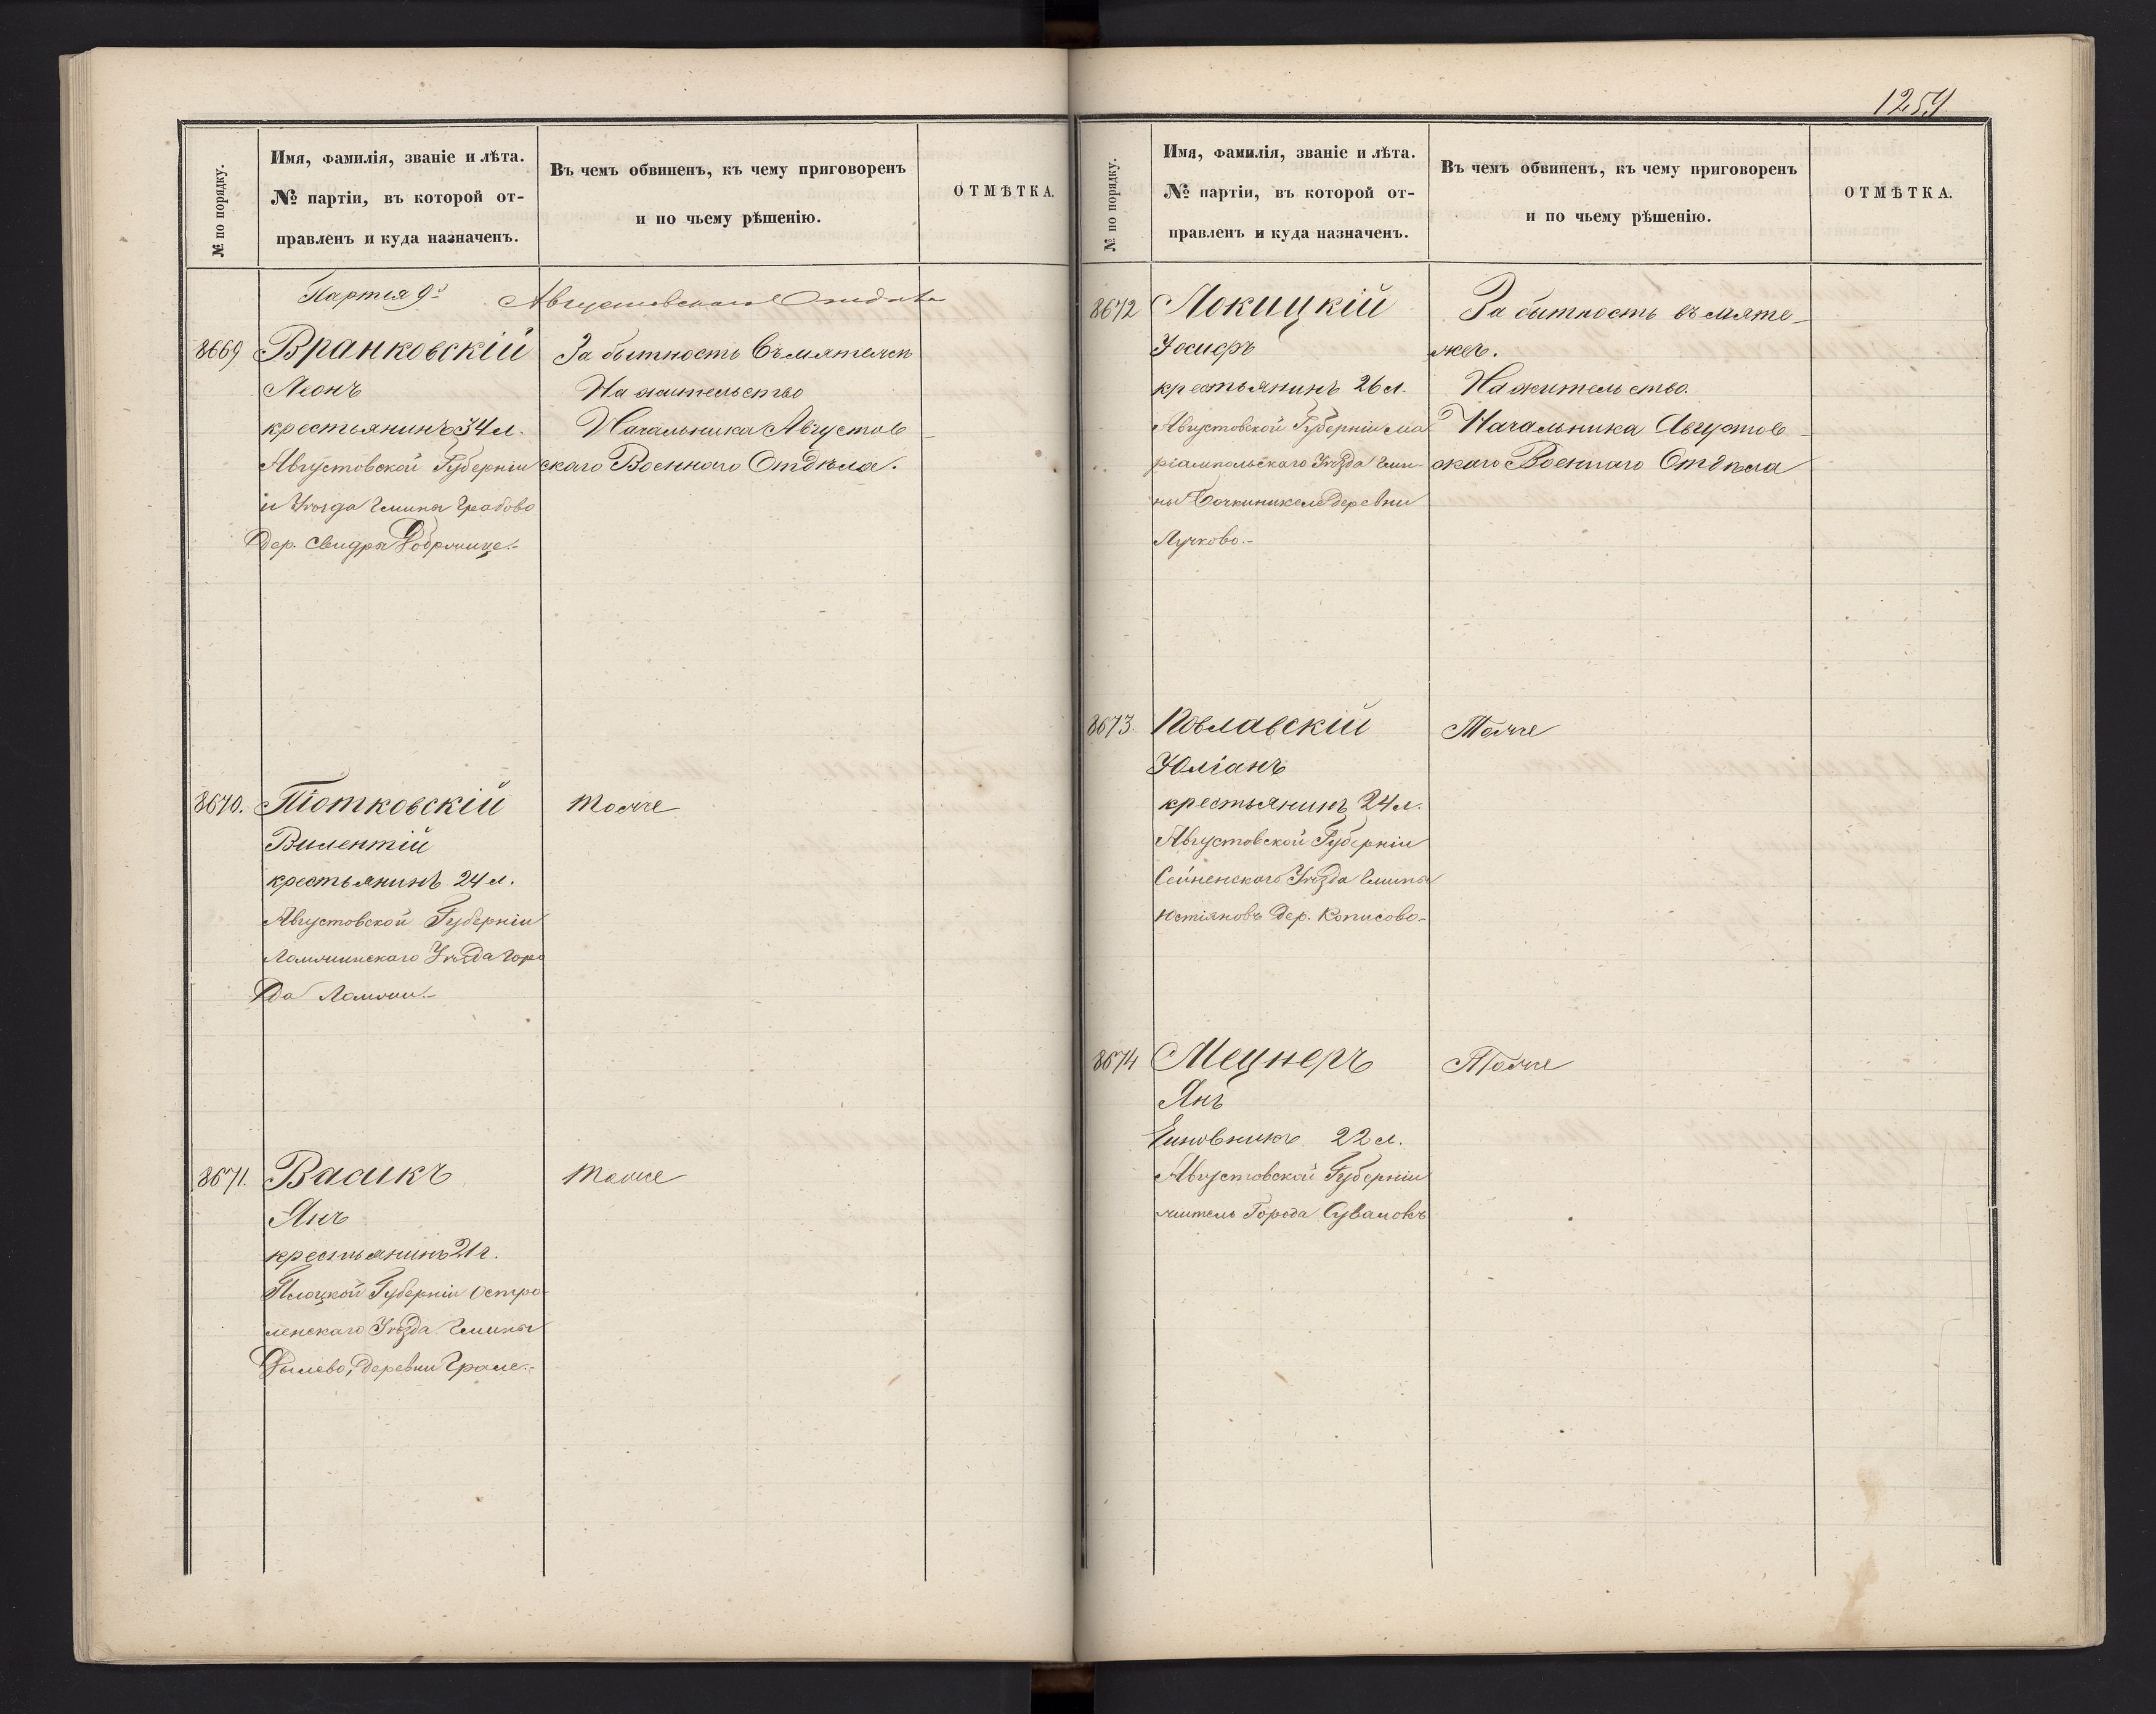 № по порядку.
Имя, фамилія, званіе и лѣта.
№ партіи, въ которой от-
правленъ и куда назначенъ.
Въ чемъ обвиненъ, къ чему приговоренъ
и по чьему рѣшенію.
ОТМѢТКА.
Партія 9я Августовскаго Отдѣла
8669
Вранковскій
Леонъ
крестьянинъ 34 л.
Августовской Губерніи
и Уѣзда Гмины Грабово
дер. Свидры Добржице.-
За бытность въ мятежѣ
На жительство
Начальника Августов-
скаго Военнаго Отдѣла.
8670.
Піотковскій
Вилентій
крестьянинъ 24 л.
Августовской Губерніи
Ломжинскаго Уѣзда горо
да Ломжи.-
тоже
8671.
Васикъ
Янъ
крестьянинъ 21 г.
Плоцкой Губерніи Остро-
ленскаго Уѣзда Гмины
Дылево, деревни
тоже
1259
№ по порядку.
Имя, фамилія, званіе и лѣта.
№ партіи, въ которой от-
правленъ и куда назначенъ.
Въ чемъ обвиненъ, къ чему приговоренъ
и по чьему рѣшенію.
ОТМѢТКА.
8672
Локицкій
Іосифъ
крестьянинъ 26 л.
Августовской Губерніи Ма
ріампольскаго Уѣзда Гми-
ны деревни
Лучково.-
За бытность въ мяте-
жѣ.
На жительство.
Начальника Августов-
скаго Военнаго Отдѣла
8673.
Ковлавскій
Юліанъ
крестьянинъ 24 л.
Августовской Губерніи
Сейненскаго Уѣзда Гмины
дер. Кописово-
Тоже
8674
Мецнеръ
Янъ
Чиновникъ 22 л.
Августовской Губерніи
житель Города Сувалокъ
Тоже